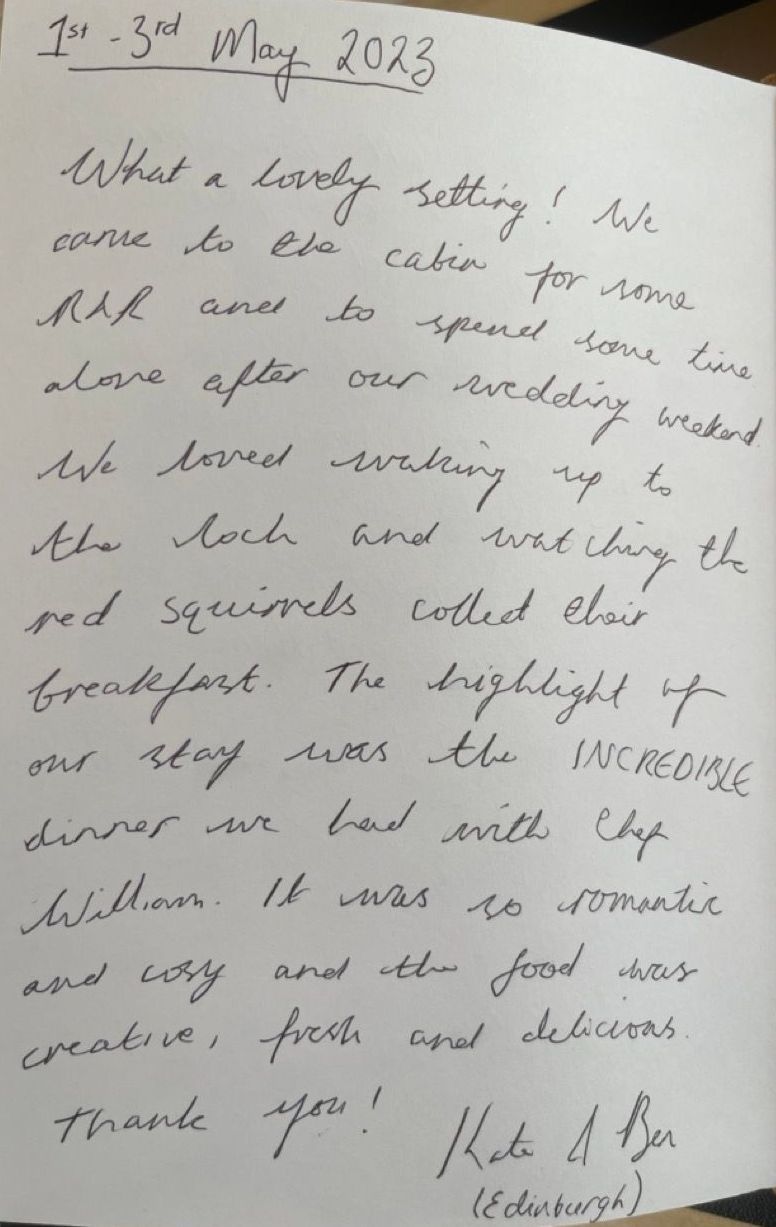 1st - 3rd May 2023
What a lovely setting! We
came to the cabin for some
R&R and to spend some time
alone after our wedding weekend.
We loved waking up to
the loch and watching the
red squirrels collect their
breakfast. The highlight of
our stay was the INCREDIBLE
dinner we had with Chef
William. It was so romantic
and cosy and the food was
creative, fresh and delicious.
Thank you!
Kate & Ben
(Edinburgh)